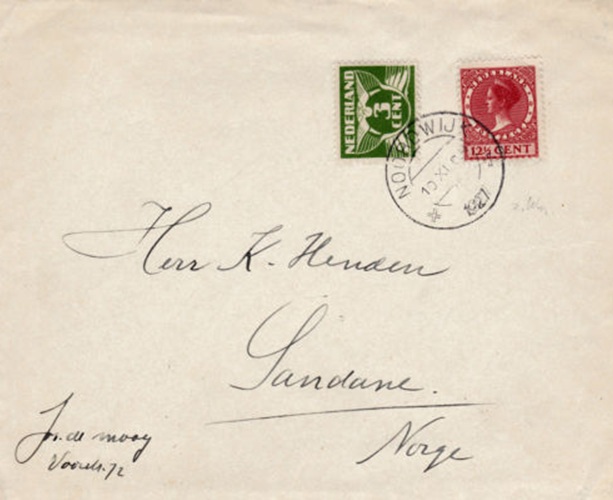 NEDERLAND
3
CENT
NEDERLAND
12½ CENT
NOORDWIJK
10 XI
1927
Herr K. Henden
Sandane.
Norge
Jos. de mooy
Voorstr. 72